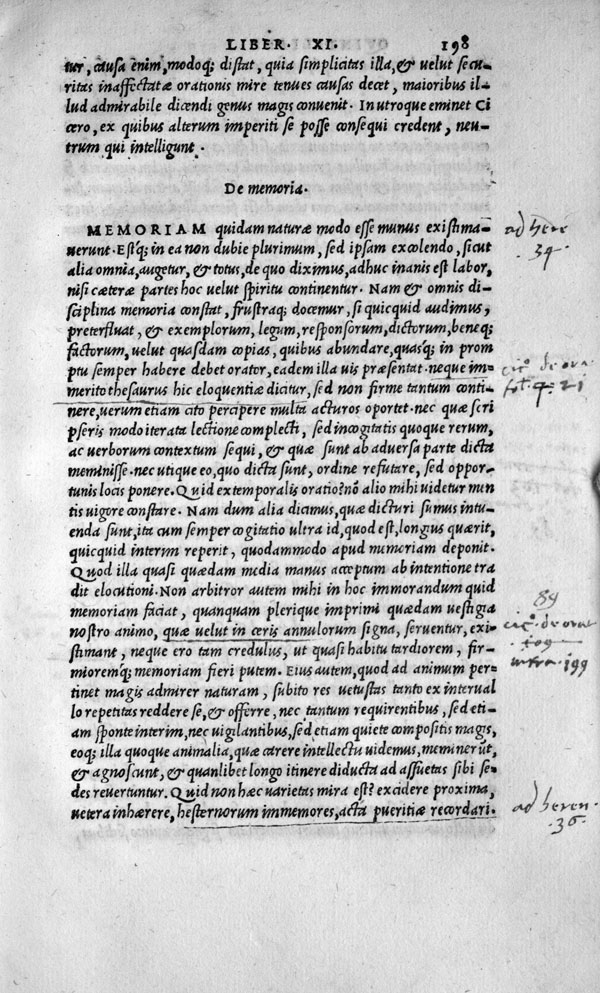 LIBER. XI. 198
tur, causa enim, modoq; distat, quia simplicitas illa, & uelut secu-
ritas inaffectatæ orationis mire tenues causas decet, maioribus il-
lud admirabile dicendi genus magis conuenit. In utroque eminet Ci
cero, ex quibus alterum imperiti se posse consequi credent, neu-
trum qui intelligunt.
De memoria.
MEMORIAM quidam naturæ modo esse munus existima-
uerunt. Estq; in ea non dubie plurimum, sed ipsam excolendo, sicut
alia omnia, augetur, & totus, de quo diximus, adhuc inanis est labor,
nisi cæteræ partes hoc uelut spiritu continentur. Nam & omnis di-
sciplina memoria constat, frustraq; docemur, si quicquid audimus,
preterfluat, & exemplorum, legum, responsorum, dictorum, deneq;
factorum, uelut quasdam copias, quibus abundare, quasq; in prom
ptu semper habere debet orator, eadem illa uis præsentat. neque im-
merito thesaurus hic eloquentiæ dicitur, sed non firme tantum conti-
nere, uerum etiam cito percipere multa acturos oportet. nec quæ scri
pseris modo iterata lectione complecti, sed in cogitatis quoque rerum,
ac uerborum contextum sequi, & quæ sunt ab aduersa parte dicta
meminisse. nec utique eo, quo dicta sunt, ordine refutare, sed oppor-
tunis locis ponere. Quid extemporalis oratio? nõ alio mihi uidetur mun
tis uigore constare. Nam dum alia dicimus, quæ dicturi sumus intu-
enda sunt, ita cum semper cogitatio ultra id, quod est, longius quærit,
quicquid interim reperit, quodammodo apud memoriam deponit.
Quod illa quasi quædam media manus acceptum ab intentione tra
dit elocutioni. Non arbitror autem mihi in hoc immorandum quid
memoriam faciat, quanquam plerique imprimi quædam uestigia
nostro animo, quæ uelut in ceris annulorum signa, seruentur, exi-
stimant, neque ero tam credulus, ut quasi habitu tardiorem, fir-
mioremq; memoriam fieri putem. Eius autem, quod ad animum per-
tinet magis admirer naturam, subito res uetustas tanto ex interual
lo repetitas reddere se, & offerre, nec tantum requirentibus, sed eti-
am sponte interim, nec uigilantibus, sed etiam quiete compositis magis,
eoq; illa quoque animalia, quæ carere intellectu uidemus, meminerũt,
& agnoscunt, & quanlibet longo itinere diducta ad assuetas sibi se-
des reuertuntur. Quid non hæc uarietas mira est? excidere proxima,
uetera inhærere, hesternorum immemores, acta pueritiæ recordari.
ad here
34
cic.° de ora
fol. 4. 21
89
cic.° de orat
infra 199
ad heren
36